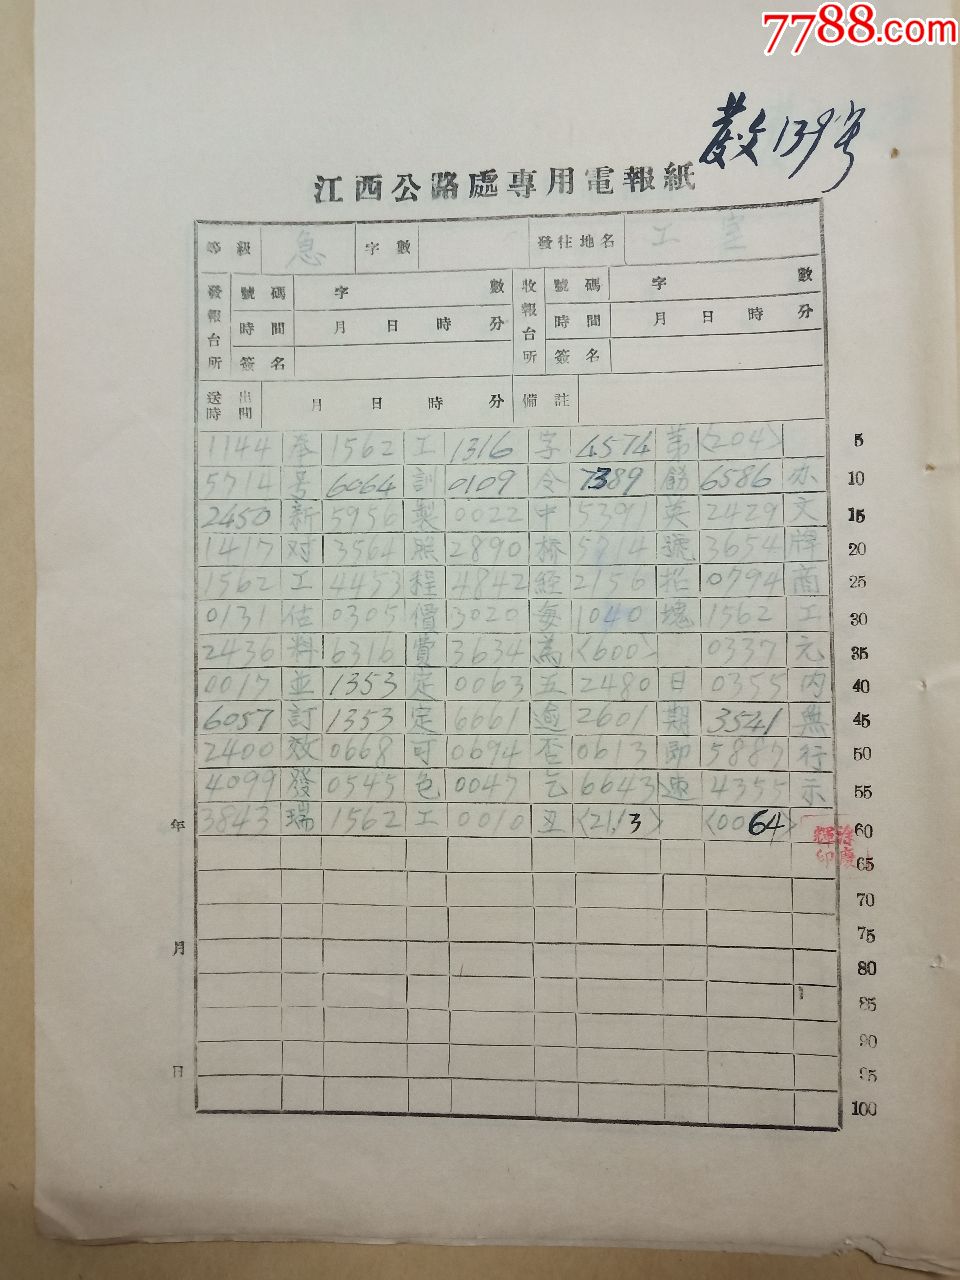 7788.com
發文139号
江西公路處專用電報紙
等級 急 字數 發往地名 工室
發報台所 號碼 字數 收報台所 號碼 字數
時間 月日時分 時間 月日時分
簽名 簽名
送出時間 月日時分 備註
1144 奉 1562 工 1316 字 4574 第 <204> 5
5714 号 6064 訓 0109 令 7389 飭 6586 办 10
2450 新 5956 製 0022 中 5391 英 2429 文 15
1417 对 3564 照 2890 桥 5714 號 3654 牌 20
1562 工 4453 程 4842 經 2156 招 0794 商 25
0131 估 0305 價 3020 每 1040 塊 1562 工 30
2436 料 6316 費 3634 為 <600> 0337 元 35
0017 並 1353 定 0063 五 2480 日 0355 內 40
6057 訂 1353 定 6661 逾 2601 期 3541 無 45
2400 效 0668 可 0694 否 0613 即 5887 行 50
4099 發 0545 包 0047 乞 6643 速 4355 示 55
3843 瑞 1562 工 0010 丑 <2113> <0064> 60
年
65
70
75
月
80
85
90
日
95
100